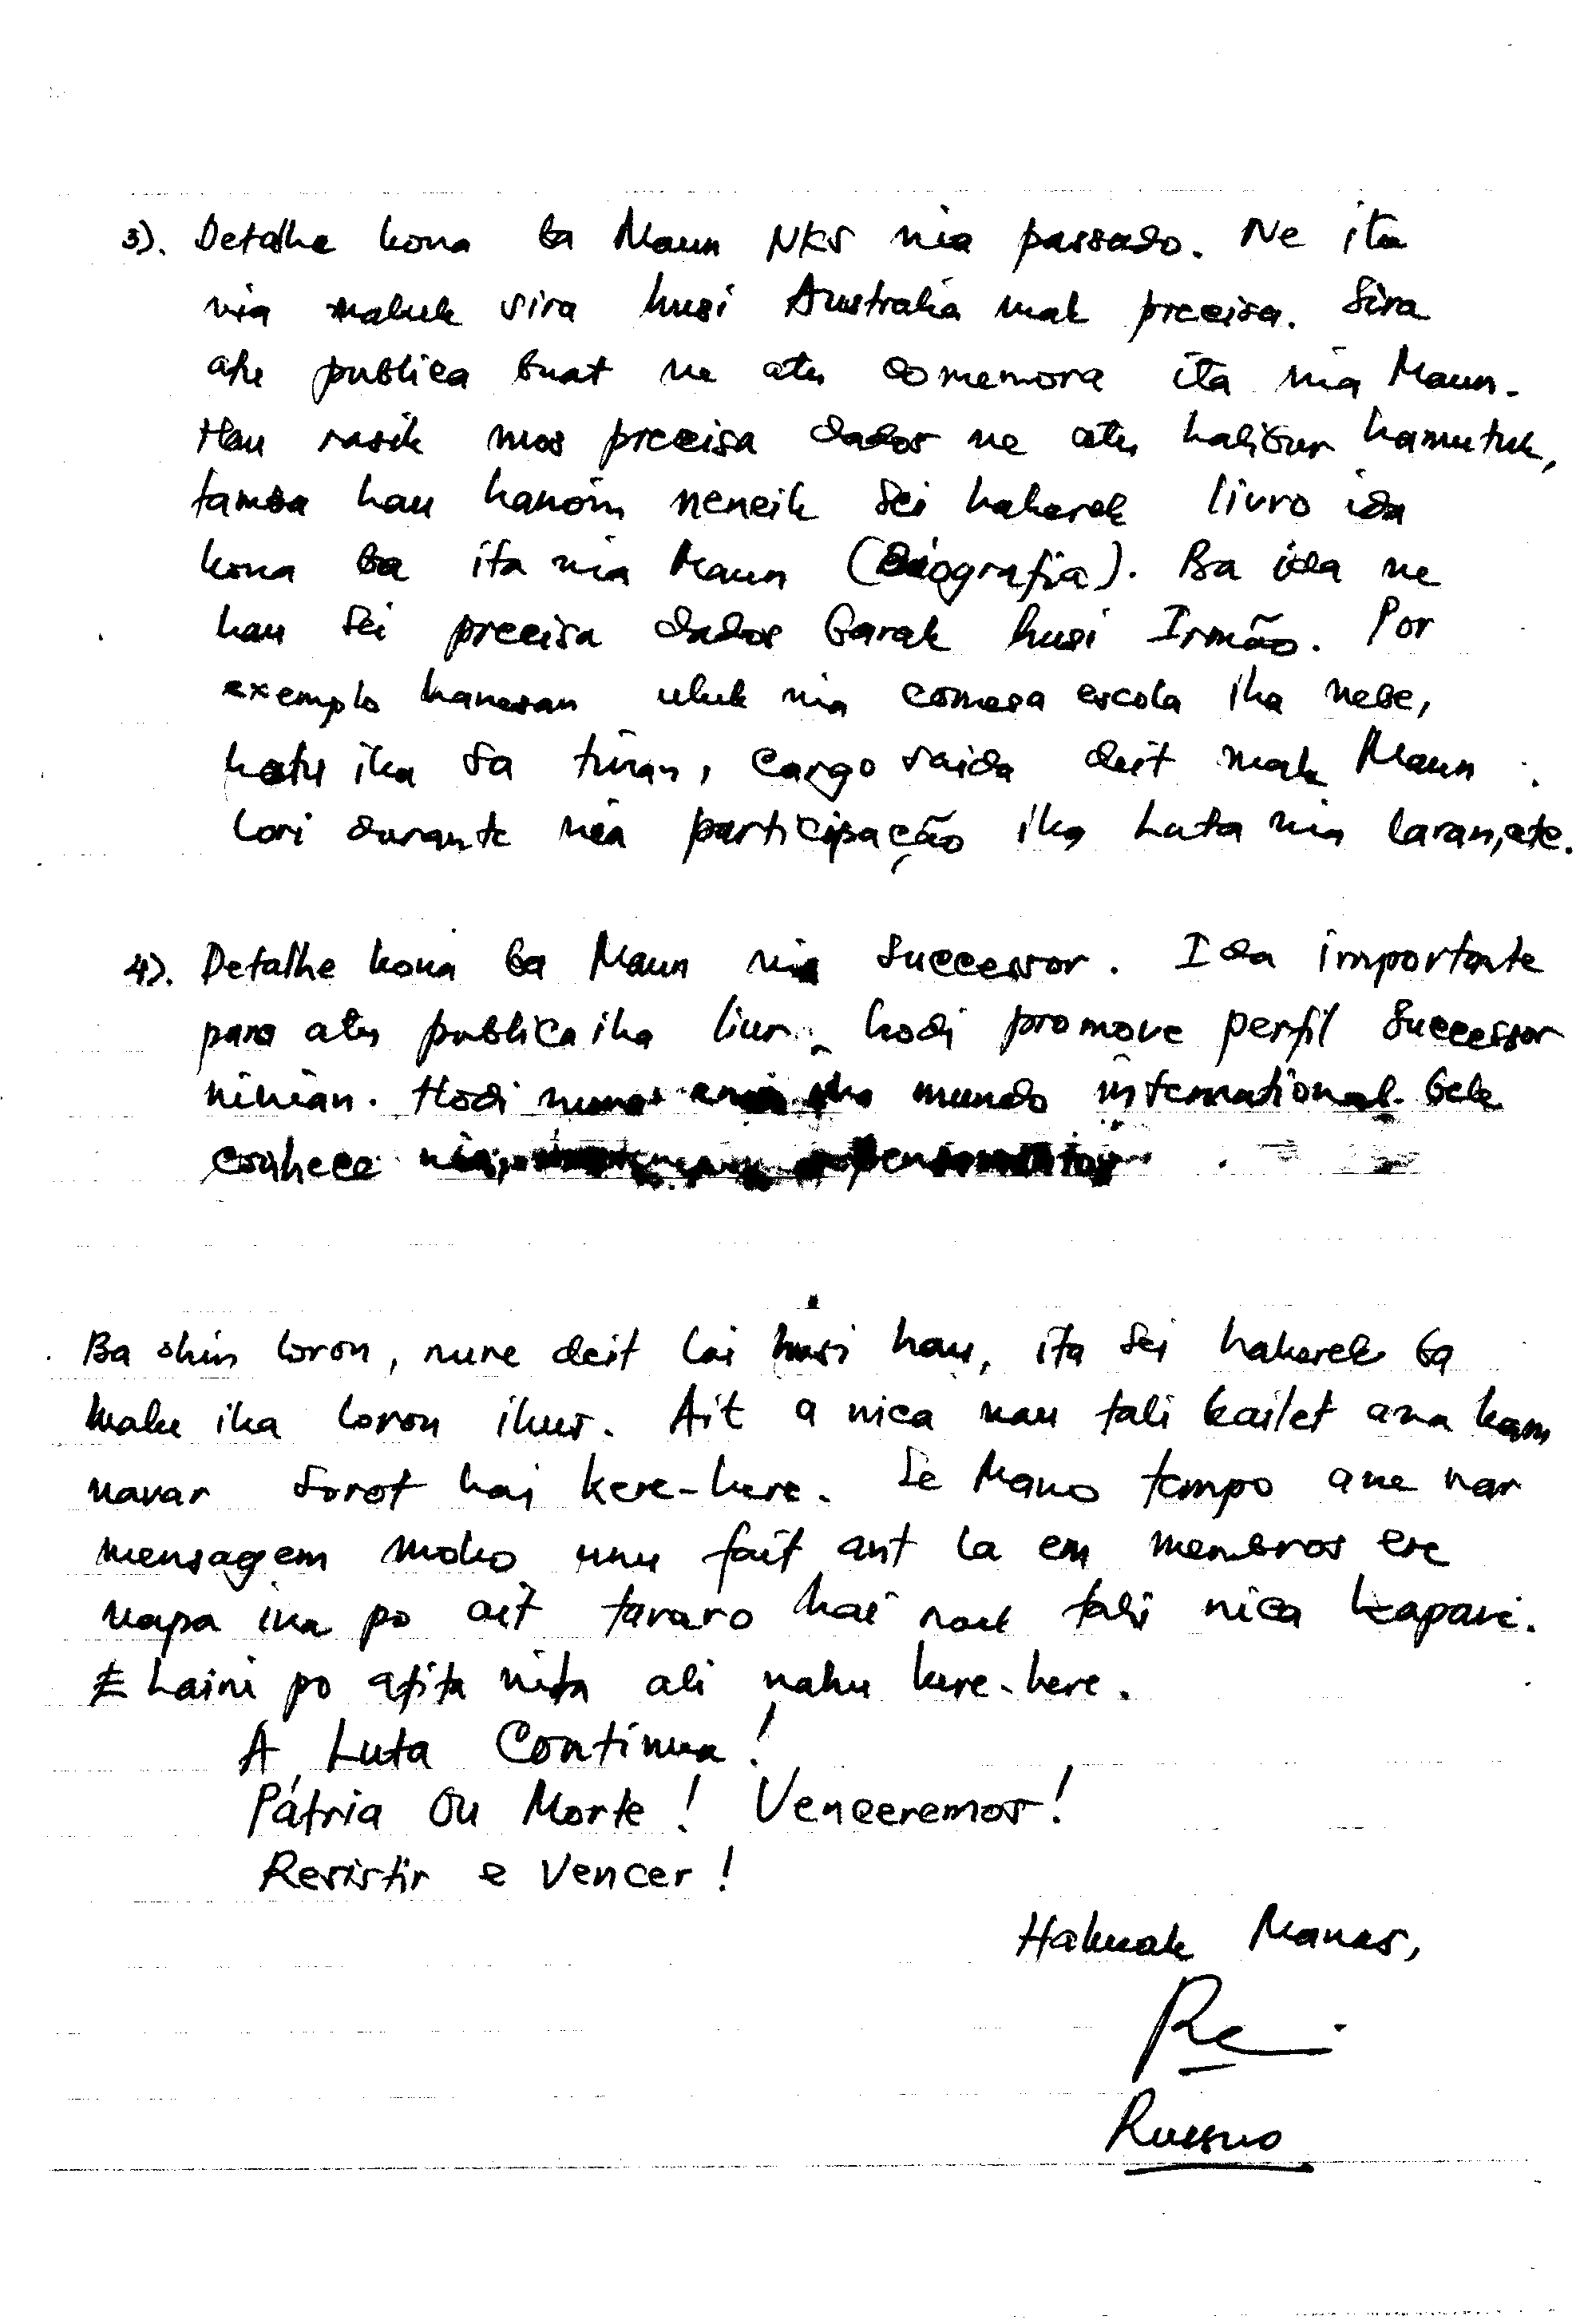 3). Detalhe kona ba Maun NKS nia passado. Ne ita
nia maluk sira husi Australia mak precisa. Sira
atu publica buat ne atu comemora ita nia Maun.
Hau rasik mos precisa dados ne atu halibur hamutuk,
tamba hau hanoin neneik sei hakerek livro ida
kona ba ita nia Maun (Biografia). Ba ida ne
hau sei precisa dados barak husi Irmão. Por
exemplo hanesan uluk nia comesa escola iha nebe,
hotu iha sa tinan, cargo saida deit mak Maun
lori durante nia participação iha Luta nia laran, etc.
4). Detalhe kona ba Maun nia Successor. Ida importante
para atu publica iha liur, hodi promove perfil Successor
ninian. Hodi mundo international bele
conhece nia,
Ba ohin loron, nune deit lai husi hau, ita sei hakerek ba
malu iha loron ikus. Ait a nica nau tali kailet ana kam
navar sorot hai kere-here. Se Mano tempo ane nar
mensagem moko unu fait ant la em membros ere
napa ina po ait tavaro hai nael tali nica kapare.
E Laini po afita nita ali nahu kere-here.
A Luta Continua!
Pátria Ou Morte! Venceremos!
Resistir e Vencer!
Hakuak Manas,